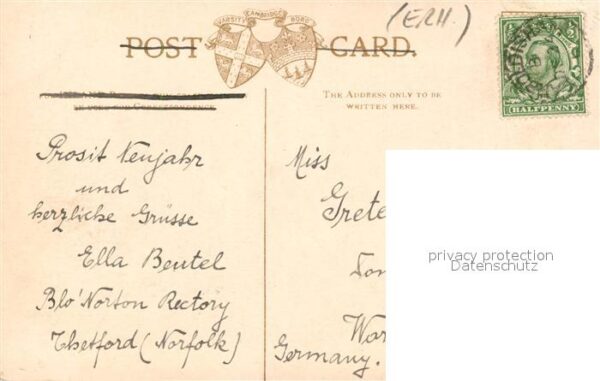 (ERH.)
VARSITY CAMBRIDGE BORO
POST CARD.
THE ADDRESS ONLY TO BE
WRITTEN HERE.
HALFPENNY
Prosit Neujahr
und
herzliche Grüsse
Ella Beutel
Blo' Norton Rectory
Thetford (Norfolk)
Miss
Grete
Germany.
privacy protection
Datenschutz